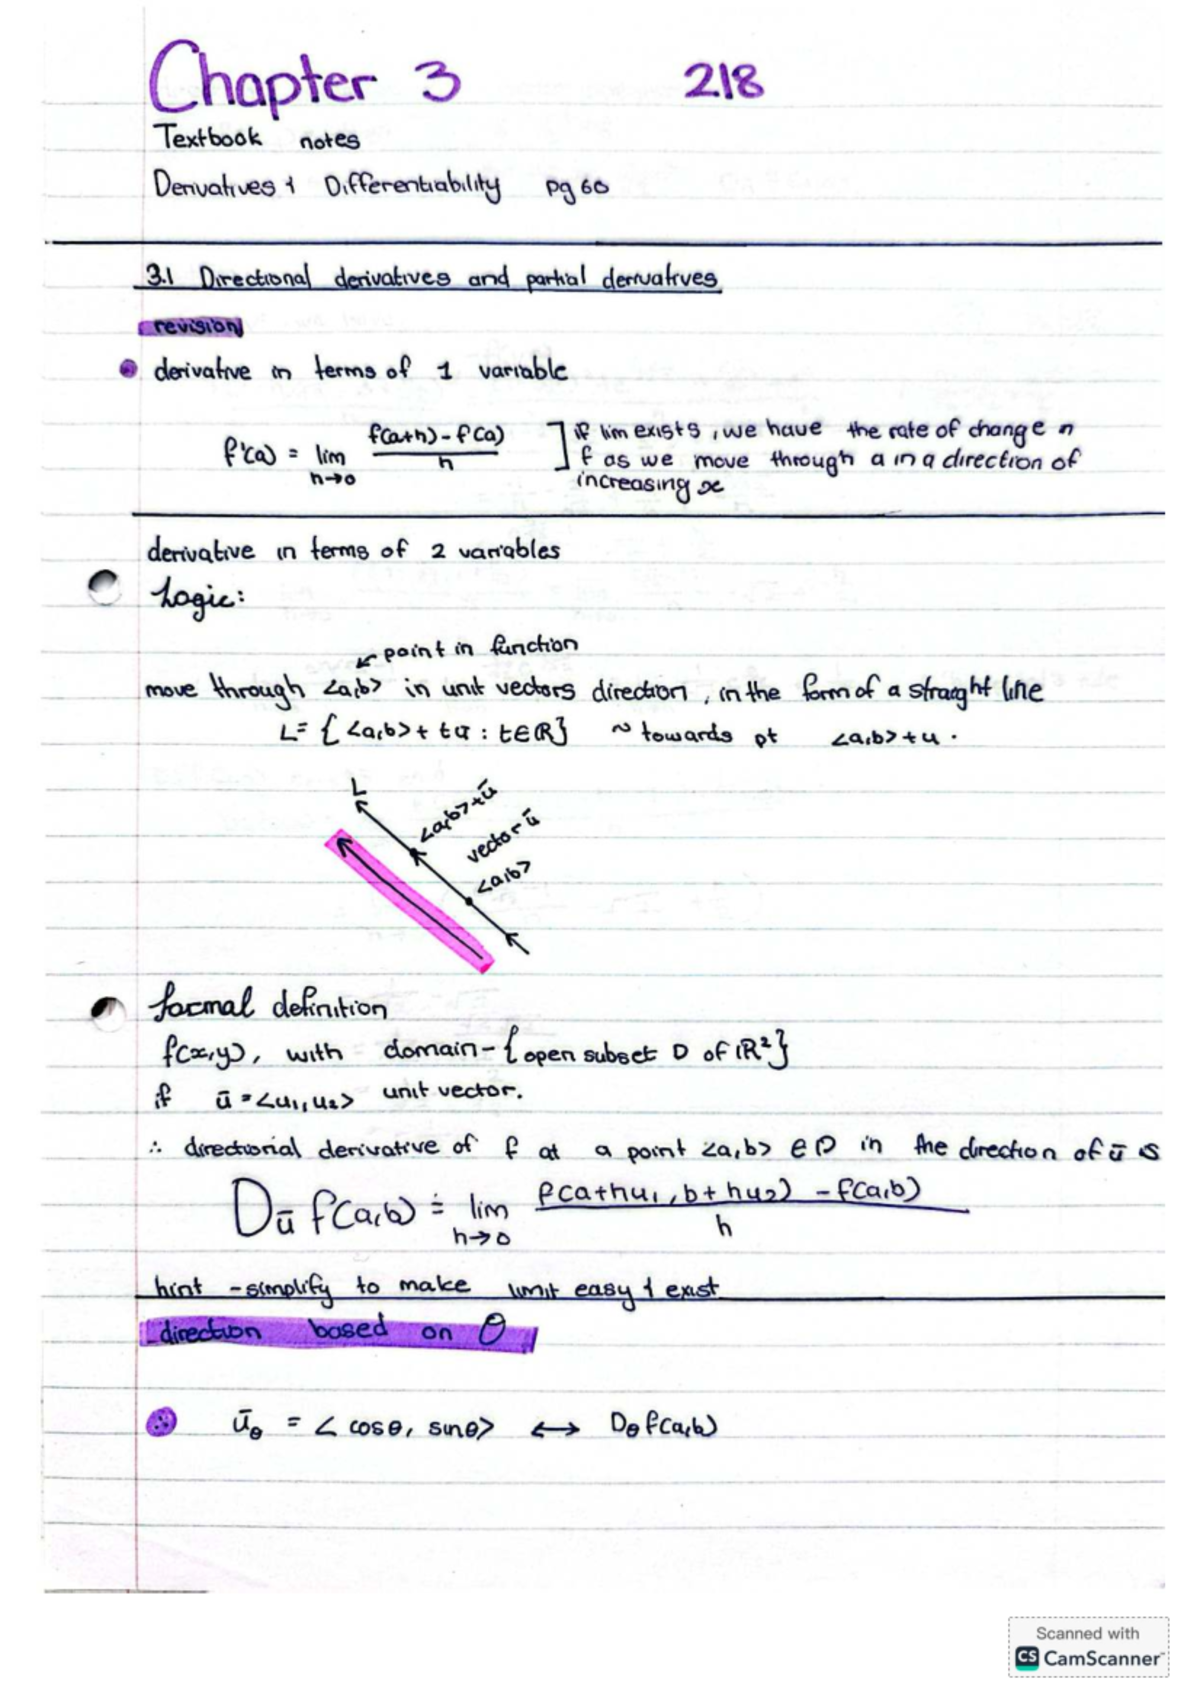 Chapter 3 218
Textbook notes
Derivatives & Differentiability pg 60
3.1 Directional derivatives and partial derivatives
revision
derivative in terms of 1 variable
f'(a) = lim h→0 f(a+h) - f(a) / h ] if lim exists, we have the rate of change n
f as we move through a in a direction of
increasing x
derivative in terms of 2 variables
Logic:
↙ point in function
move through <a,b> in unit vectors direction, in the form of a straight line
L= { <a,b> + tū : t∈ℝ} ~ towards pt <a,b> + u.
L
<a,b>+ū
vector ū
<a,b>
formal definition
f(x,y), with domain - {open subset D of ℝ²}
if ū = <u₁, u₂> unit vector.
∴ directional derivative of f at a point <a,b> ∈ D in the direction of ū is
Dū f(a,b) ≐ lim h→0 f(a+hu₁, b+hu₂) - f(a,b) / h
hint - simplify to make limit easy & exist
direction based on θ
ūθ = < cosθ, sinθ> ↔ Dθ f(a,b)
Scanned with
CS CamScanner